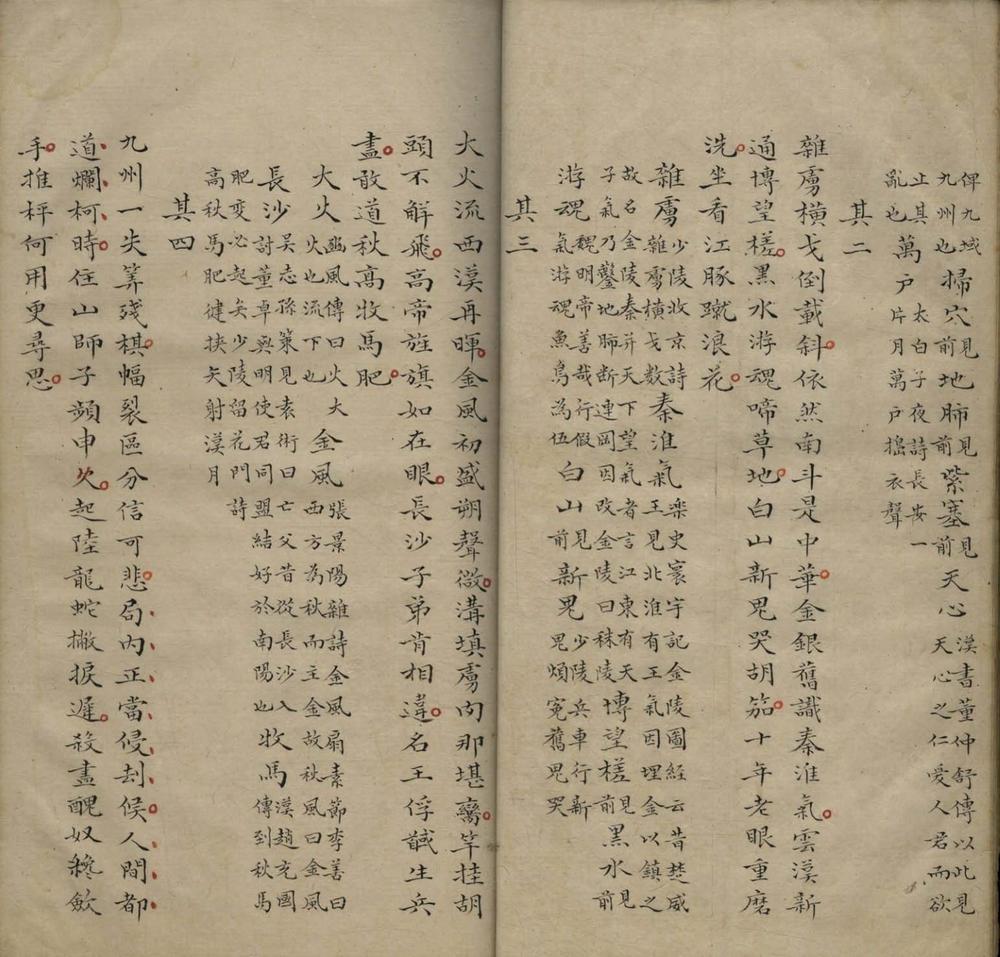 俾九域九州也掃穴前見地肺前見紫塞前見天心漢書董仲舒傳以此見天心之仁愛人君而欲
止其亂也萬戶太白子夜詩長安一片月萬戶搗衣聲
其二
雜虜橫戈倒載斜依然南斗是中華金銀舊識秦淮氣雲漢新
通博望槎黑水游魂啼草地白山新鬼哭胡笳十年老眼重磨
洗坐看江豚蹴浪花
雜虜少陵收京詩雜虜橫戈數秦淮氣樂史寰宇記金陵圖經云昔楚威王見北淮有王氣因埋金以鎮之
故名金陵秦并天下望氣者言江東有天子氣乃鑿地肺斷連岡因改金陵曰秣陵博望槎前見黑水前見
游魂魏明帝善哉行假氣游魂魚鳥為伍白山前見新鬼少陵兵車行新鬼煩冤舊鬼哭
其三
大火流西漢再暉金風初盛朔聲微溝填虜肉那堪臠竿挂胡
頭不解飛高帝旌旗如在眼長沙子弟肯相違名王俘馘生兵
盡敢道秋高牧馬肥
大火豳風傳曰火大火也流下也金風張景陽雜詩金風扇素節李善曰西方為秋而主金故秋風曰金風
長沙吳志孫策見袁術曰亡父昔從長沙入討董卓與明使君同盟結好於南陽也牧馬漢趙充國傳到秋馬
肥變必起矣少陵留花門詩高秋馬肥健挾矢射漢月
其四
九州一失筭殘棋幅裂區分信可悲局內正當侵刦候人間都
道爛柯時住山師子頻申久起陸龍蛇撇捩遲殺盡醜奴纔斂
手推枰何用更尋思